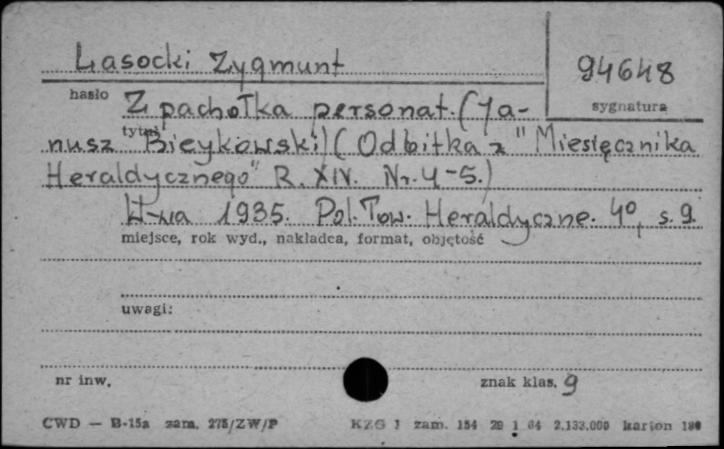 Lasocki Zygmunt
94648
hasło
sygnatura
Z pachołka personat. (Ja-
tytuł
nusz Bieykowski) (Odbitka z "Miesięcznika
Heraldycznego" R. XIV. Nr. 4-5.)
W-wa 1935. Pol. Tow. Heraldyczne. 4°, s. 9.
miejsce, rok wyd., nakładca, format, objętość
uwagi:
nr inw.
znak klas. 9
CWD — B-15a zam. 275/ZW/P
KZG 1 zam. 154 29 1 64 2.133.000 karton